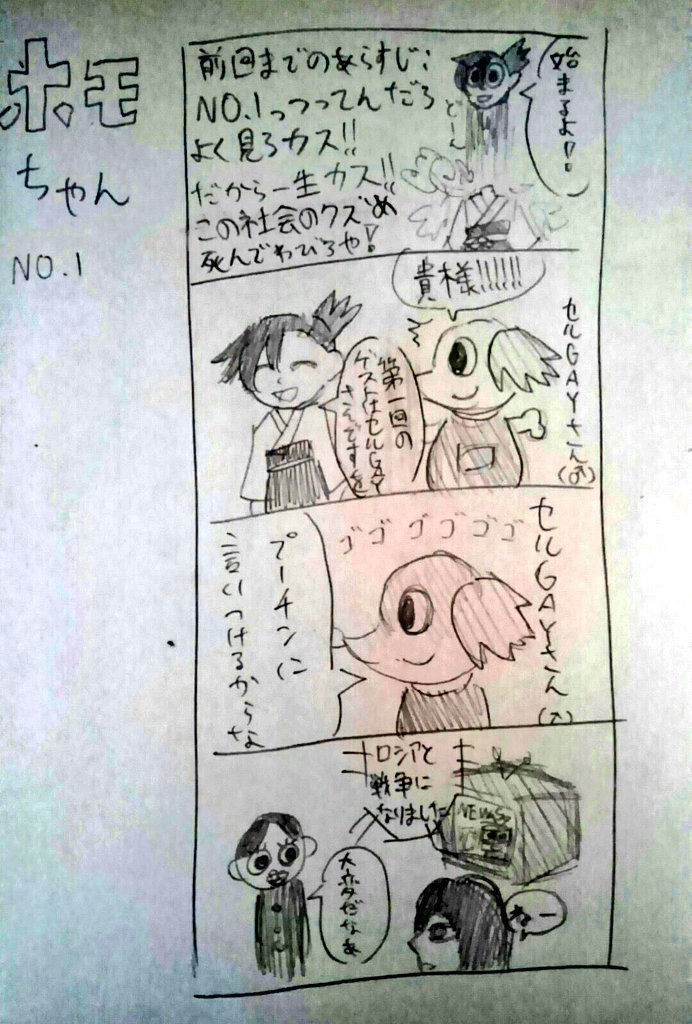 ホモ
ちゃん
NO.1
前回までのあらすじ:
NO.1っつってんだろ
よく見ろカス!!
だから一生カス!!
この社会のクズめ
死んでわびろや!
始まるよ!!
どーん
貴様!!!!!!
セルGAYさん(♂)
第一回の
ゲストはセルGAY
さんですを
セルGAYさん(♂)
ゴゴゴゴゴゴ
プーチンに
言いつけるからな
ロシアと
戦争に
なりました
NEWS
大変だなあ
ねー